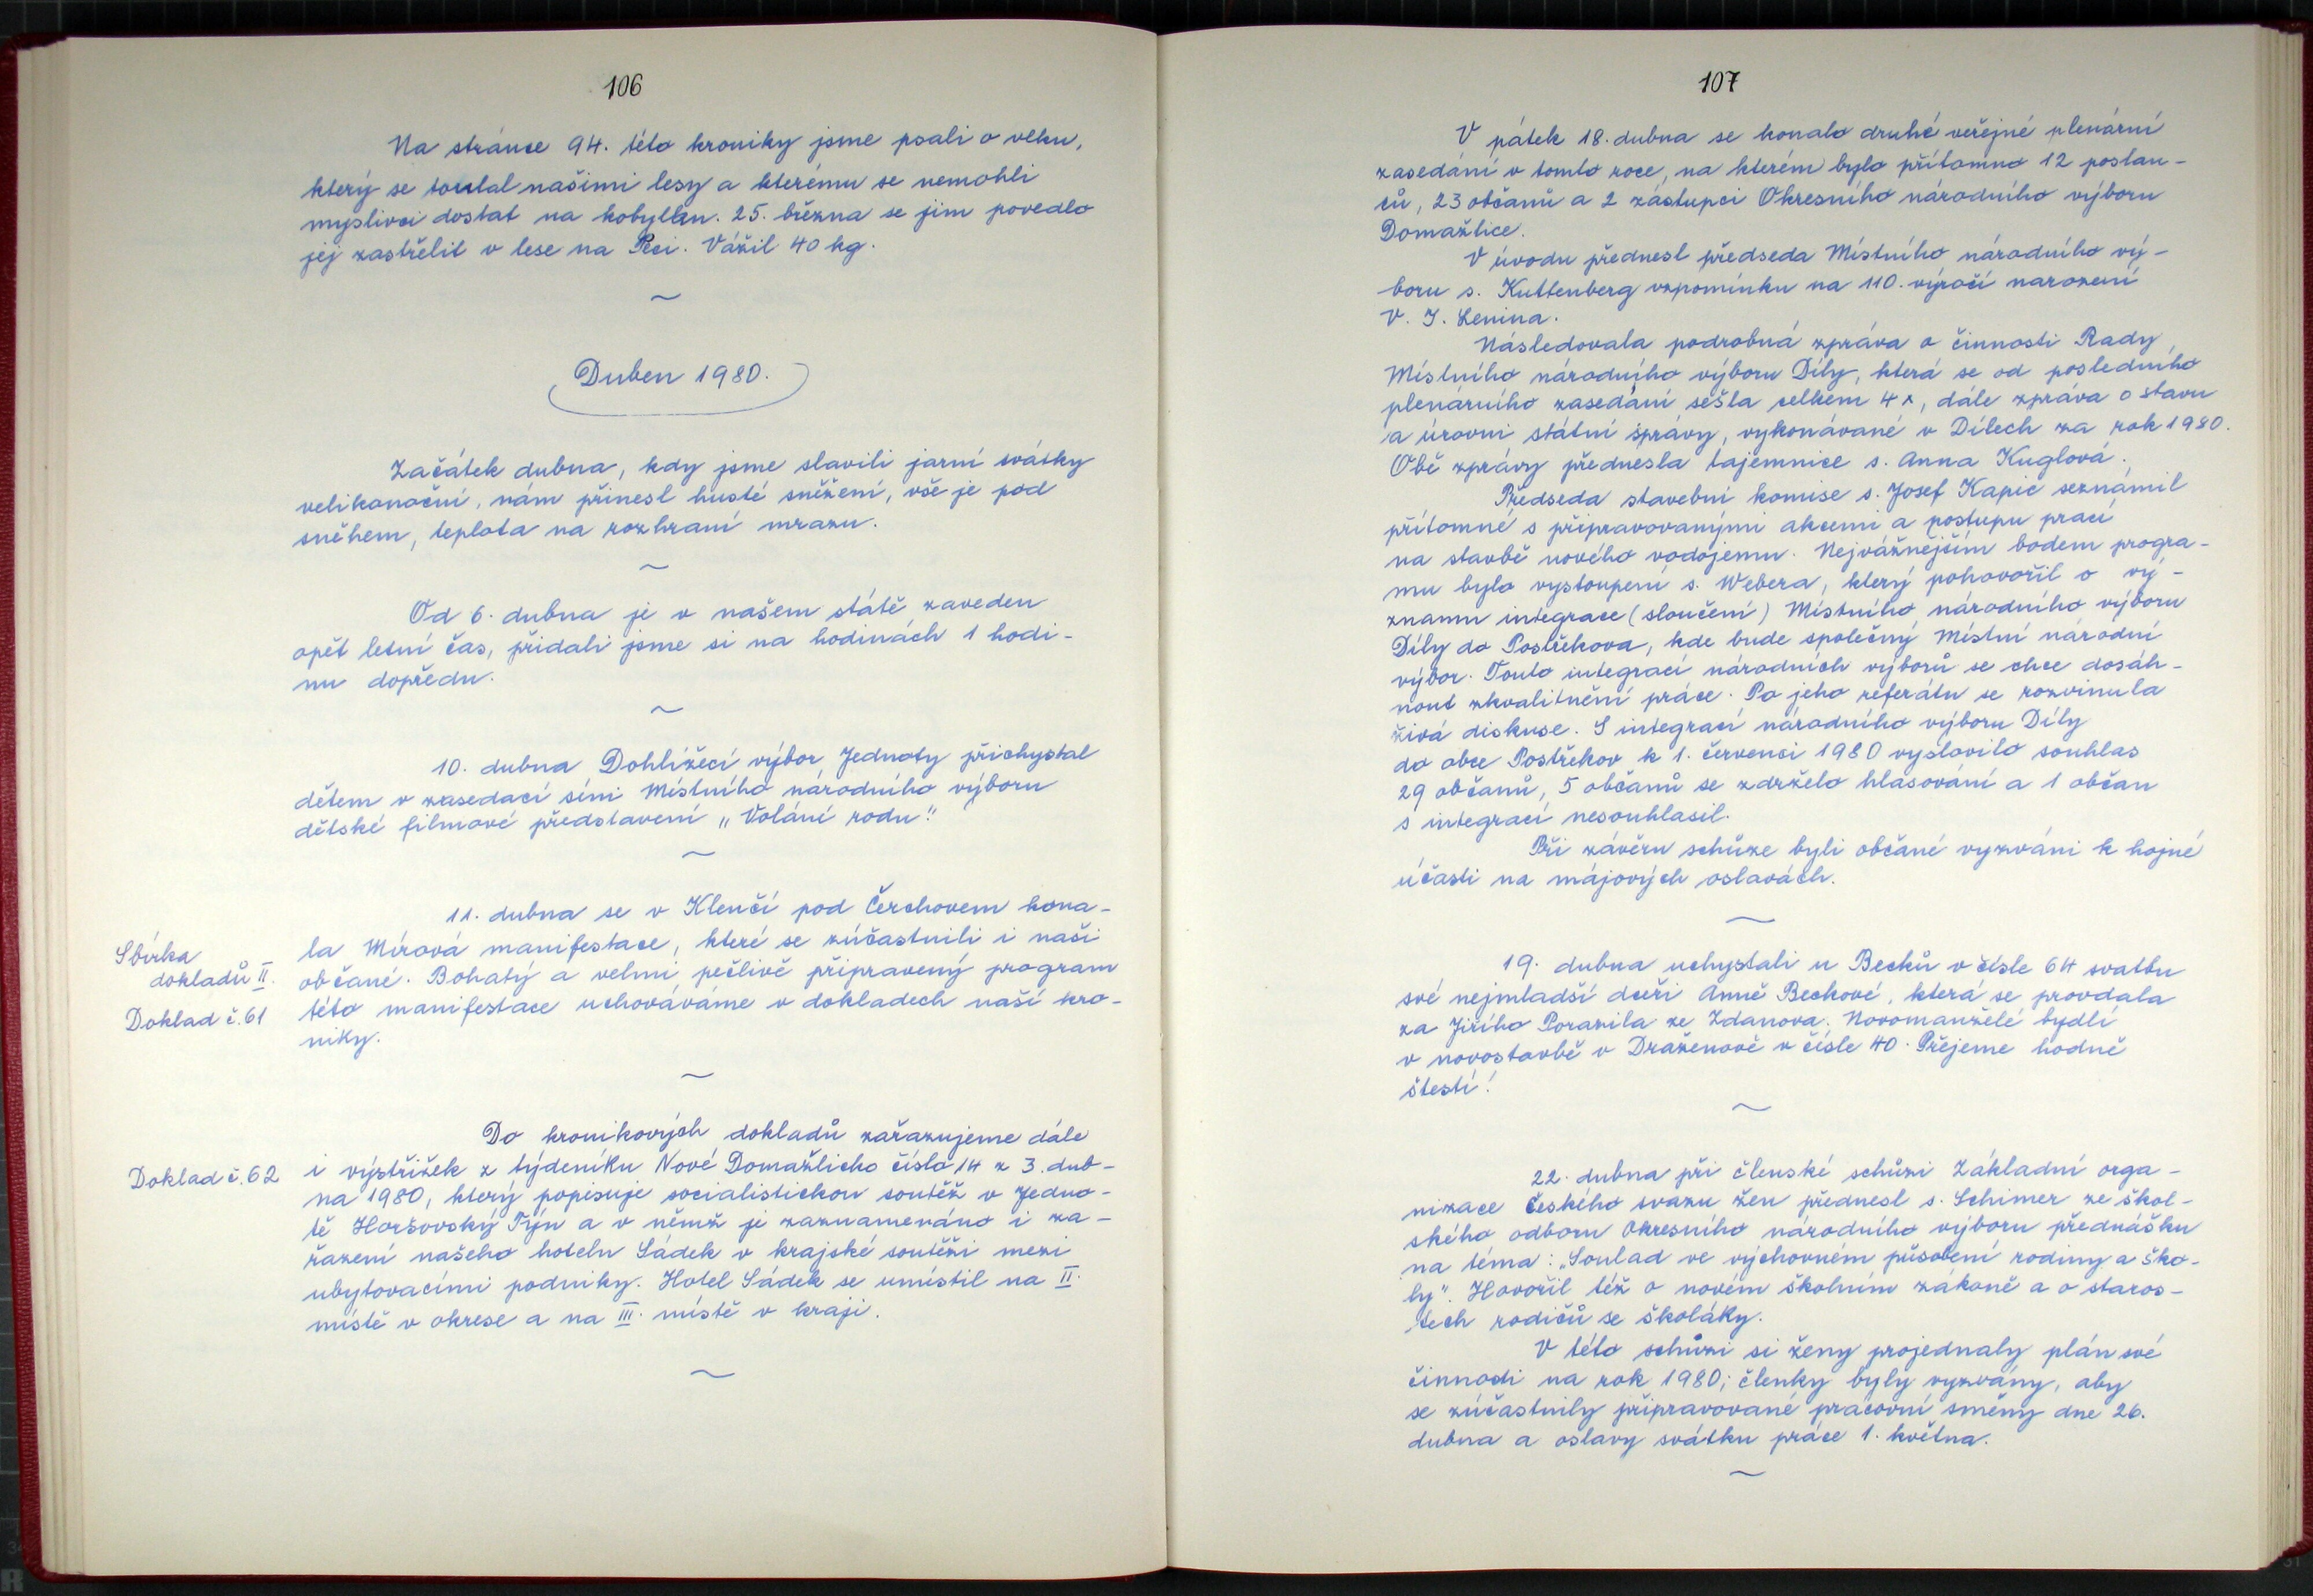 106
Na stránce 94. této kroniky jsme psali o vlku,
který se toulal našimi lesy a kterému se nemohli
myslivci dostat na kobylku. 25. března se jim povedlo
jej zastřelit v lese na Peci. Vážil 40 kg.
~
Duben 1980.
Začátek dubna, kdy jsme slavili jarní svátky
velikonoční, nám přinesl husté sněžení, vše je pod
sněhem, teplota na rozhraní mrazu.
~
Od 6. dubna je v našem státě zaveden
opět letní čas, přidali jsme si na hodinách 1 hodi-
nu dopředu.
~
10. dubna Dohlížecí výbor Jednoty přichystal
dětem v zasedací síni Místního národního výboru
dětské filmové představení „Volání rodu".
~
11. dubna se v Klenčí pod Čerchovem kona-
Sbírka
la Mírová manifestace, které se zúčastnili i naši
dokladů II.
občané. Bohatý a velmi pečlivě připravený program
Doklad č. 61
této manifestace uchováváme v dokladech naší kro-
niky.
~
Do kronikových dokladů zařazujeme dále
Doklad č. 62
i výstřižek z týdeníku Nové Domažlicko číslo 14 z 3. dub-
na 1980, který popisuje socialistickou soutěž v Jedno-
tě Horšovský Týn a v němž je zaznamenáno i za-
řazení našeho hotelu Sádek v krajské soutěži mezi
ubytovacími podniky. Hotel Sádek se umístil na II.
místě v okrese a na III. místě v kraji.
~
107
V pátek 18. dubna se konalo druhé veřejné plenární
zasedání v tomto roce, na kterém bylo přítomno 12 poslan-
ců, 23 občanů a 2 zástupci Okresního národního výboru
Domažlice.
V úvodu přednesl předseda Místního národního vý-
boru s. Kuttenberg vzpomínku na 110. výročí narození
V. I. Lenina.
Následovala podrobná zpráva o činnosti Rady
Místního národního výboru Díly, která se od posledního
plenárního zasedání sešla celkem 4x, dále zpráva o stavu
a úrovni státní správy, vykonávané v Dílech za rok 1980.
Obě zprávy přednesla tajemnice s. Anna Kuglová.
Předseda stavební komise s. Josef Kapic seznámil
přítomné s připravovanými akcemi a postupu prací
na stavbě nového vodojemu. Nejvážnějším bodem progra-
mu bylo vystoupení s. Webera, který pohovořil o vý-
znamu integrace (sloučení) Místního národního výboru
Díly do Postřekova, kde bude společný Místní národní
výbor. Touto integrací národních výborů se chce dosáh-
nout zkvalitnění práce. Po jeho referátu se rozvinula
živá diskuse. S integrací národního výboru Díly
do obce Postřekov k 1. červenci 1980 vyslovilo souhlas
29 občanů, 5 občanů se zdrželo hlasování a 1 občan
s integrací nesouhlasil.
Při závěru schůze byli občané vyzváni k hojné
účasti na májových oslavách.
~
19. dubna uchystali u Becků v čísle 64 svatbu
své nejmladší dceři Anně Beckové, která se provdala
za Jiřího Porazila ze Ždanova. Novomanželé bydlí
v novostavbě v Draženově v čísle 40. Přejeme hodně
štestí!
~
22. dubna při členské schůzi Základní orga-
nizace Českého svazu žen přednesl s. Schimer ze škol-
ského odboru Okresního národního výboru přednášku
na téma: „Soulad ve výchovném působení rodiny a ško-
ly". Hovořil též o novém školním zákoně a o staros-
tech rodičů se školáky.
V této schůzi si ženy projednaly plán své
činnosti na rok 1980; členky byly vyzvány, aby
se zúčastnily připravované pracovní směny dne 26.
dubna a oslavy svátku práce 1. května.
~